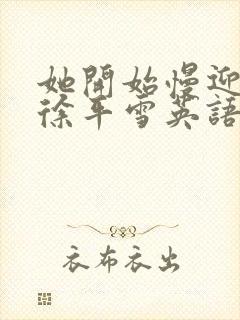 她開始慢迎
徐平雪英語
衣布衣出